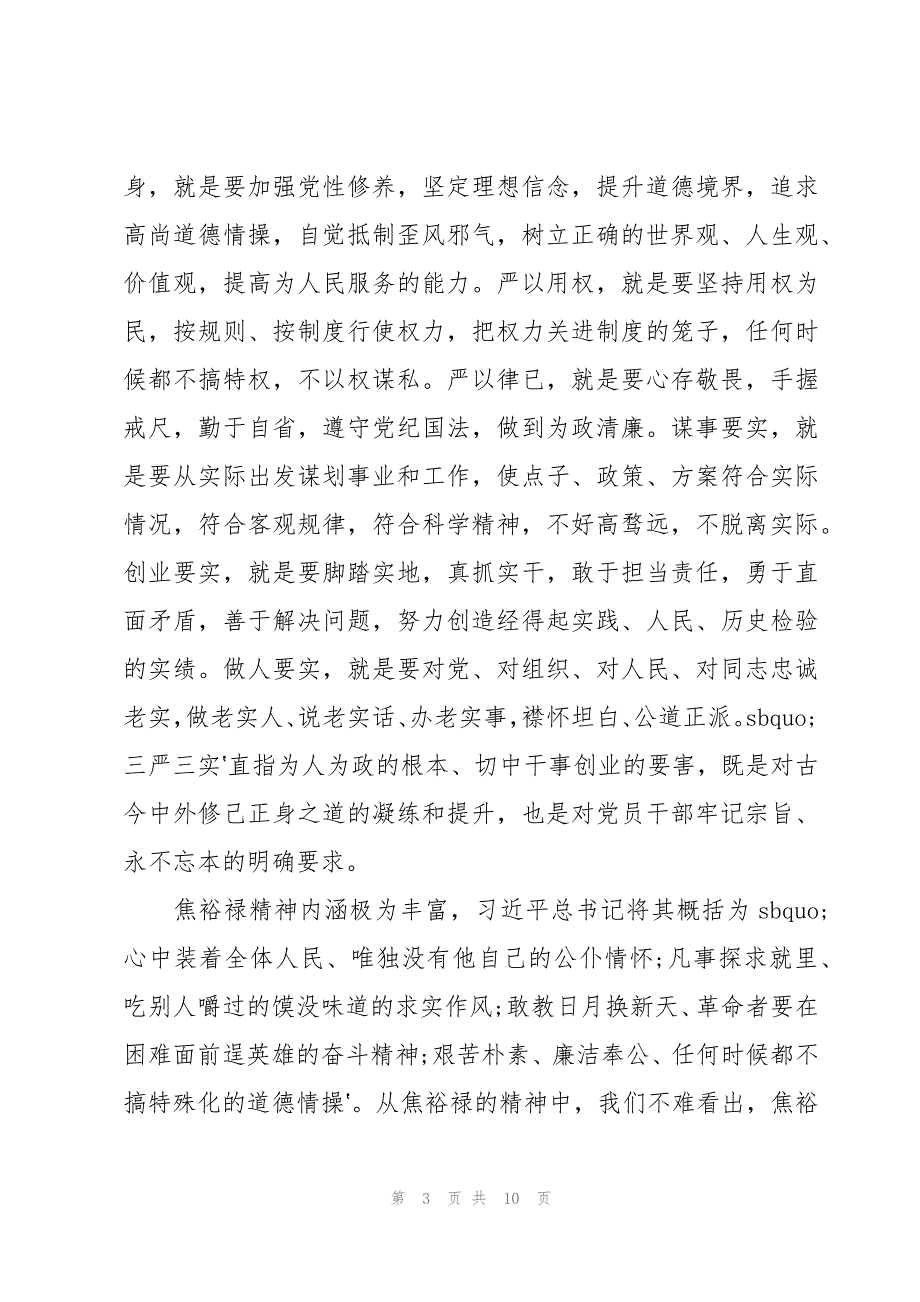 身，就是要加强党性修养，坚定理想信念，提升道德境界，追求
高尚道德情操，自觉抵制歪风邪气，树立正确的世界观、人生观、
价值观，提高为人民服务的能力。严以用权，就是要坚持用权为
民，按规则、按制度行使权力，把权力关进制度的笼子，任何时
候都不搞特权，不以权谋私。严以律已，就是要心存敬畏，手握
戒尺，勤于自省，遵守党纪国法，做到为政清廉。谋事要实，就
是要从实际出发谋划事业和工作，使点子、政策、方案符合实际
情况，符合客观规律，符合科学精神，不好高骛远，不脱离实际。
创业要实，就是要脚踏实地，真抓实干，敢于担当责任，勇于直
面矛盾，善于解决问题，努力创造经得起实践、人民、历史检验
的实绩。做人要实，就是要对党、对组织、对人民、对同志忠诚
老实，做老实人、说老实话、办老实事，襟怀坦白、公道正派。sbquo;
三严三实‛直指为人为政的根本、切中干事创业的要害，既是对古
今中外修己正身之道的凝练和提升，也是对党员干部牢记宗旨、
永不忘本的明确要求。
焦裕禄精神内涵极为丰富，习近平总书记将其概括为 sbquo;
心中装着全体人民、唯独没有他自己的公仆情怀;凡事探求就里、
吃别人嚼过的馍没味道的求实作风;敢教日月换新天、革命者要在
困难面前逞英雄的奋斗精神;艰苦朴素、廉洁奉公、任何时候都不
搞特殊化的道德情操‛。从焦裕禄的精神中，我们不难看出，焦裕
第 3 页 共 10 页